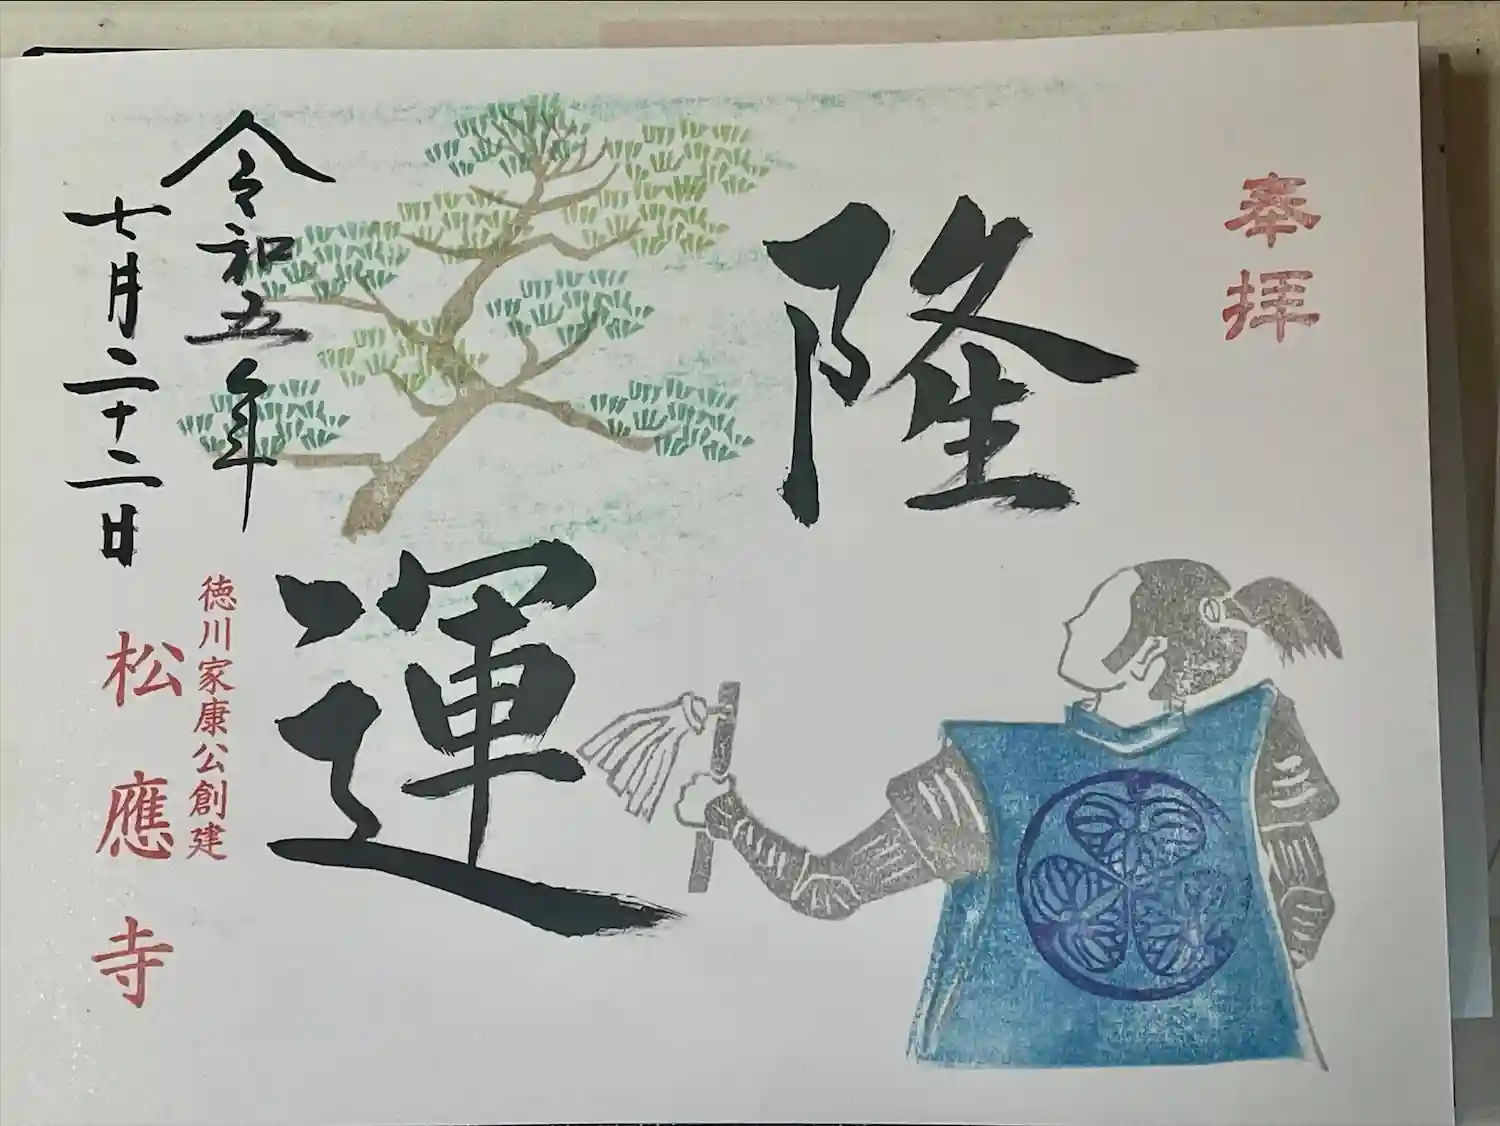 奉拝
隆運
令和五年
七月二十二日
徳川家康公創建
松應寺